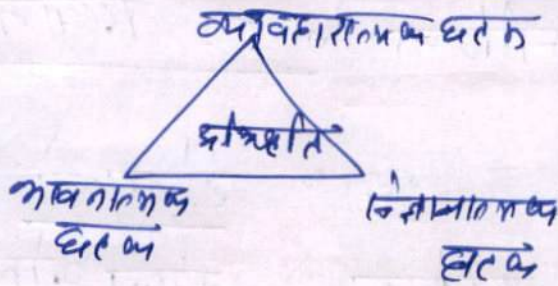 व्यवहारात्मक घटक
अभिवृत्ति
भावनात्मक
घटक
संज्ञानात्मक
घटक